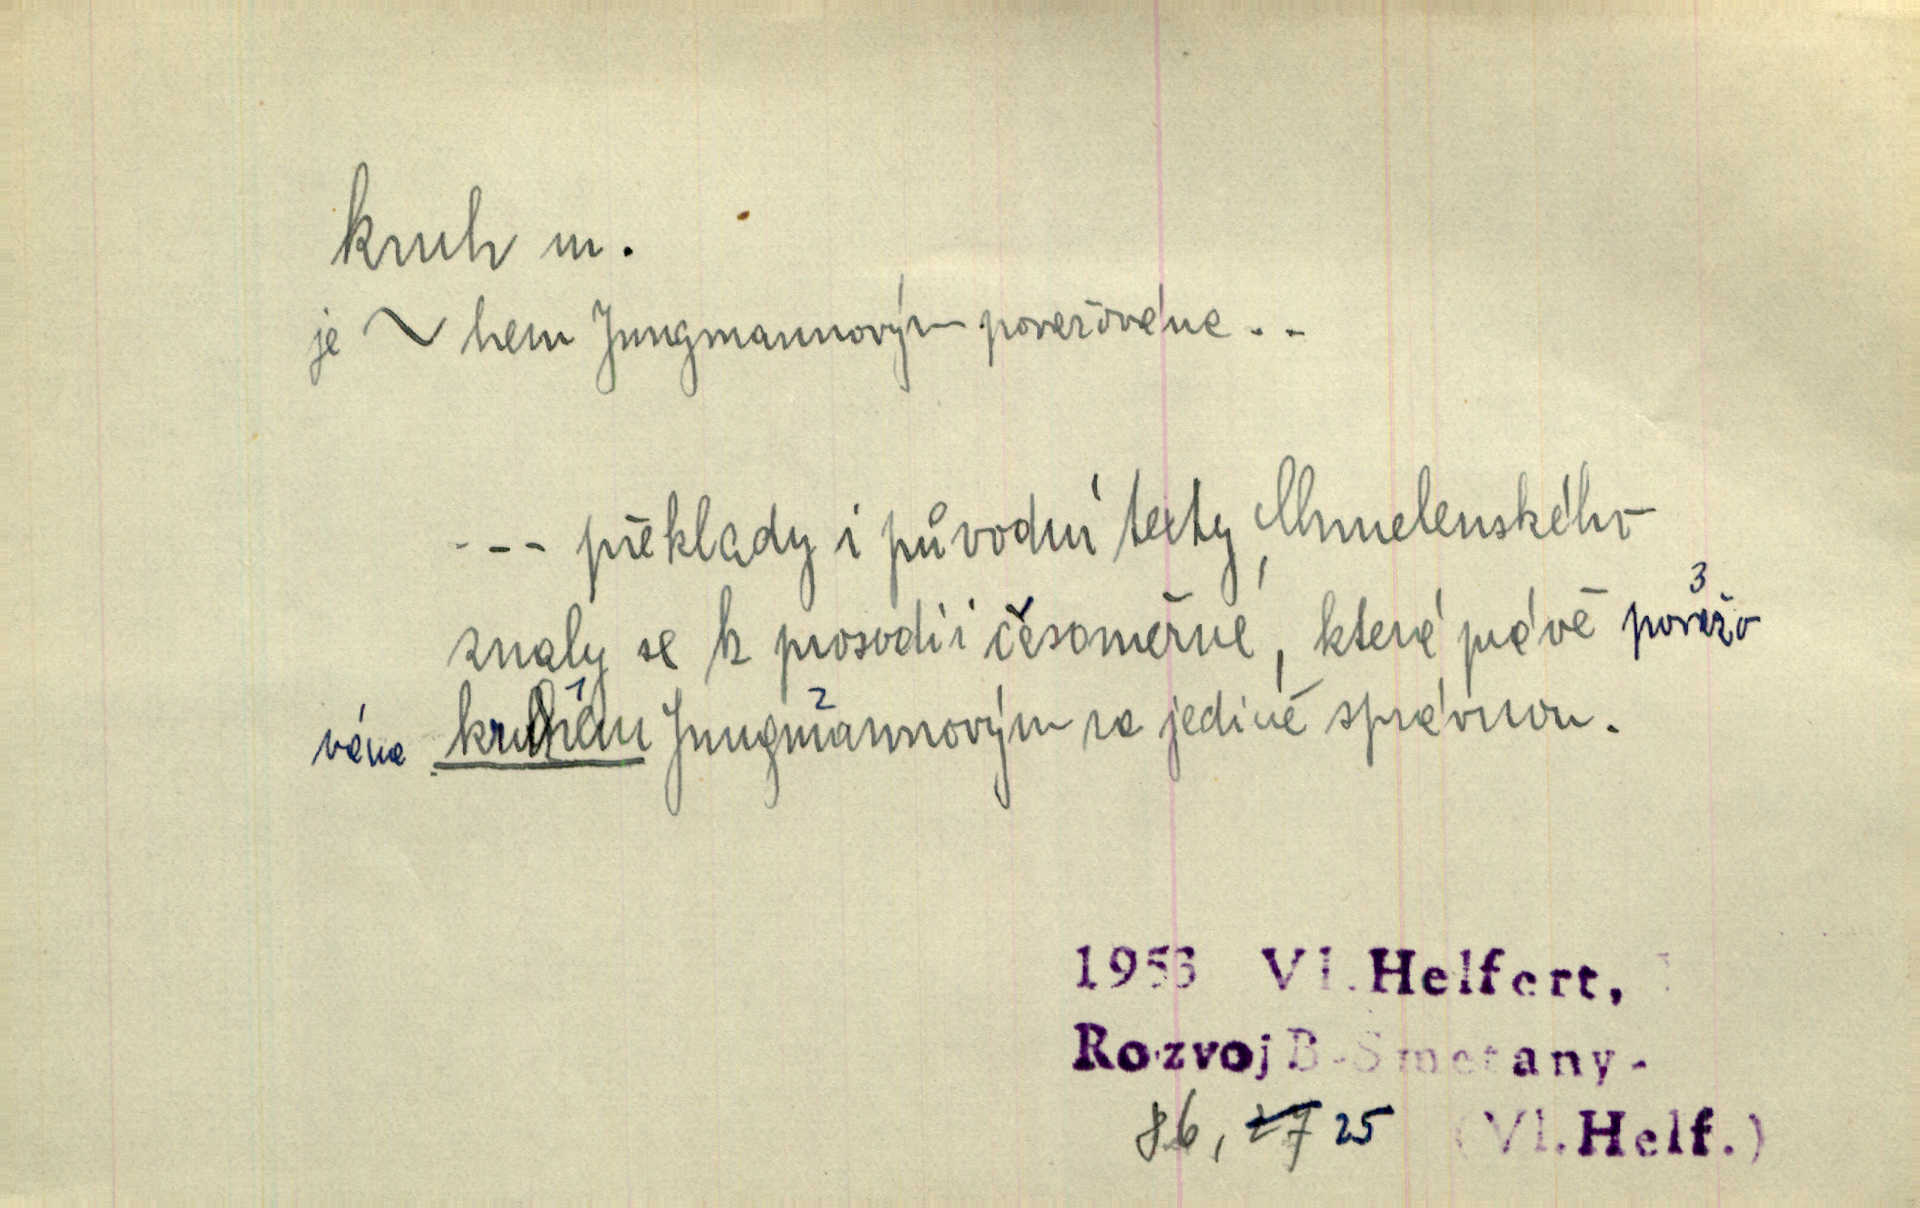 kruh m.
je ~ hem Jungmannovým považována . .
--- překlady i původní texty Chmelenského
znaly se k prosodii časoměrné, která právě ³považo
vána kruhem¹ Jungmannovým² za jedině správnou.
1953 Vl. Helfert,
Rozvoj B. Smetany -
86, 27 25 (Vl. Helf.)